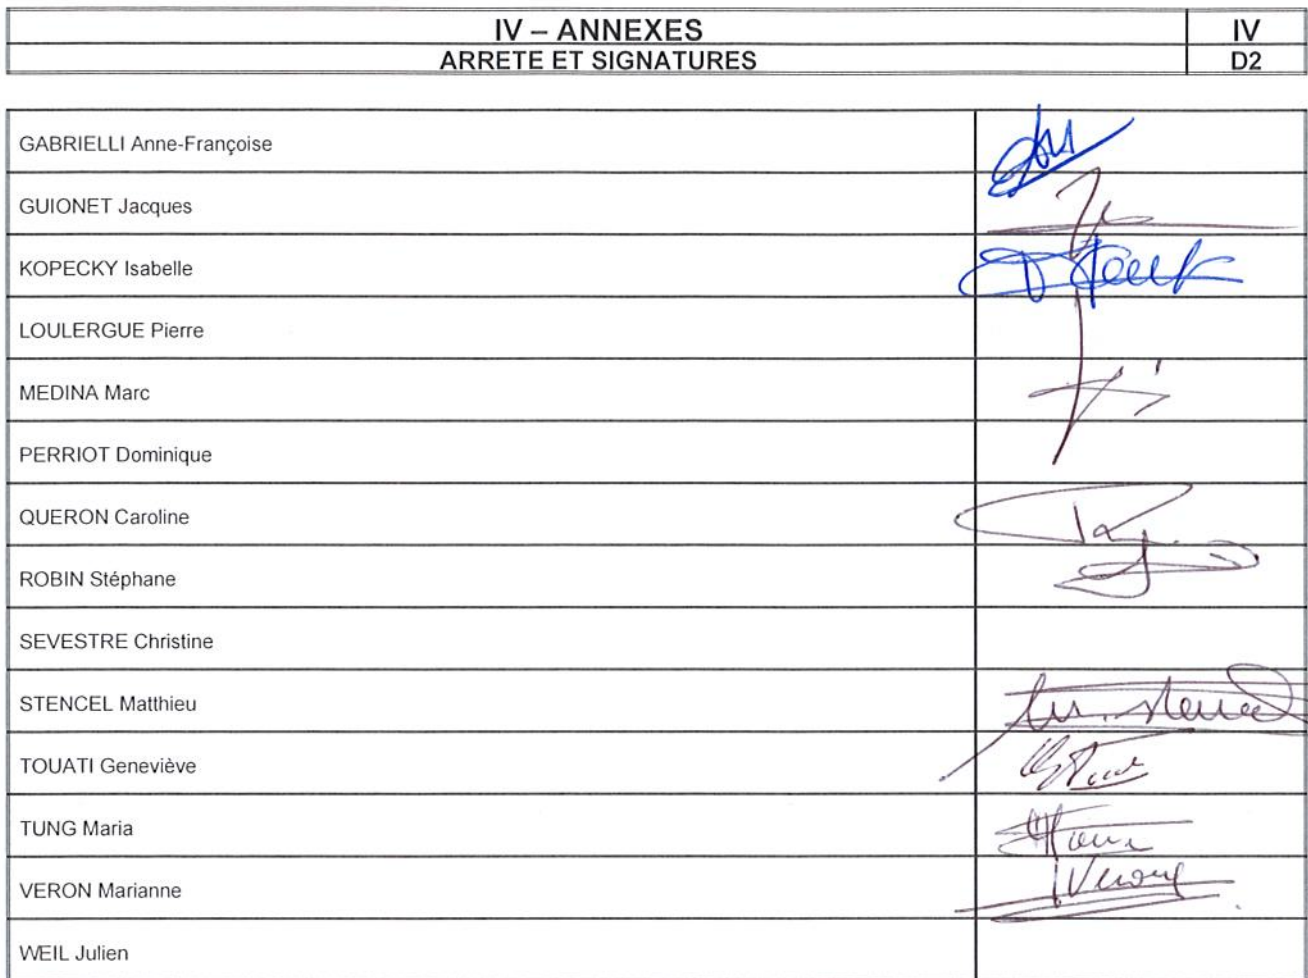 IV – ANNEXES
IV
ARRETE ET SIGNATURES
D2
GABRIELLI Anne-Françoise
GUIONET Jacques
KOPECKY Isabelle
LOULERGUE Pierre
MEDINA Marc
PERRIOT Dominique
QUERON Caroline
ROBIN Stéphane
SEVESTRE Christine
STENCEL Matthieu
TOUATI Geneviève
TUNG Maria
VERON Marianne
WEIL Julien